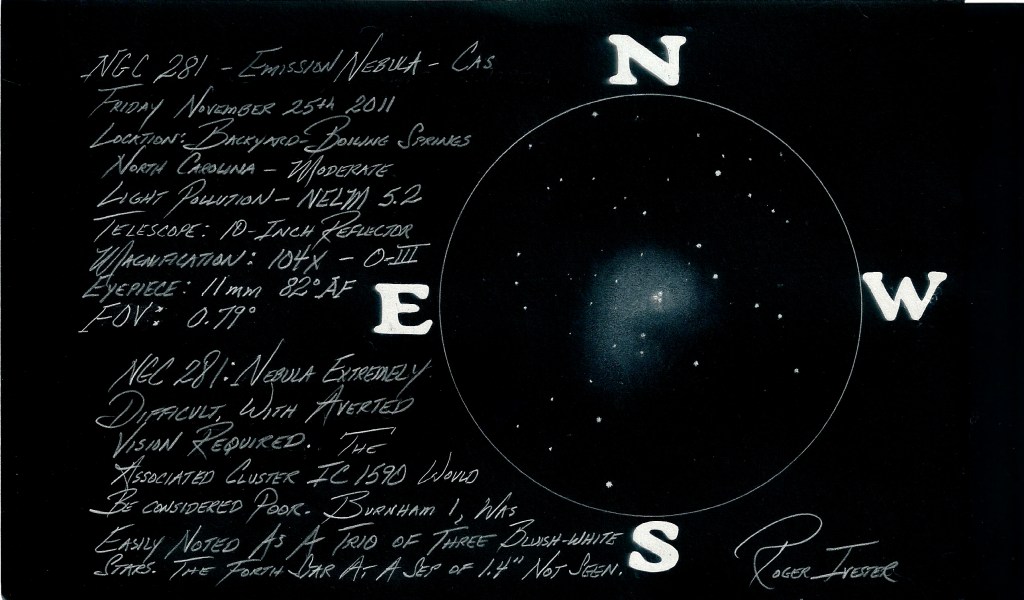 NGC 281 - Emission Nebula - Cas
Friday November 25th 2011
Location: Backyard-Boiling Springs
North Carolina - Moderate
Light Pollution - NELM 5.2
Telescope: 10-Inch Reflector
Magnification: 104X - O-III
Eyepiece: 11mm 82° AF
FOV: 0.79°
NGC 281: Nebula Extremely
Difficult, With Averted
Vision Required. The
Associated Cluster IC 1590 Would
Be considered Poor. Burnham 1, Was
Easily Noted As A Trio of Three Bluish-White
Stars. The Forth Star At A Sep of 1.4" Not Seen.
N
E
W
S
Roger Ivester